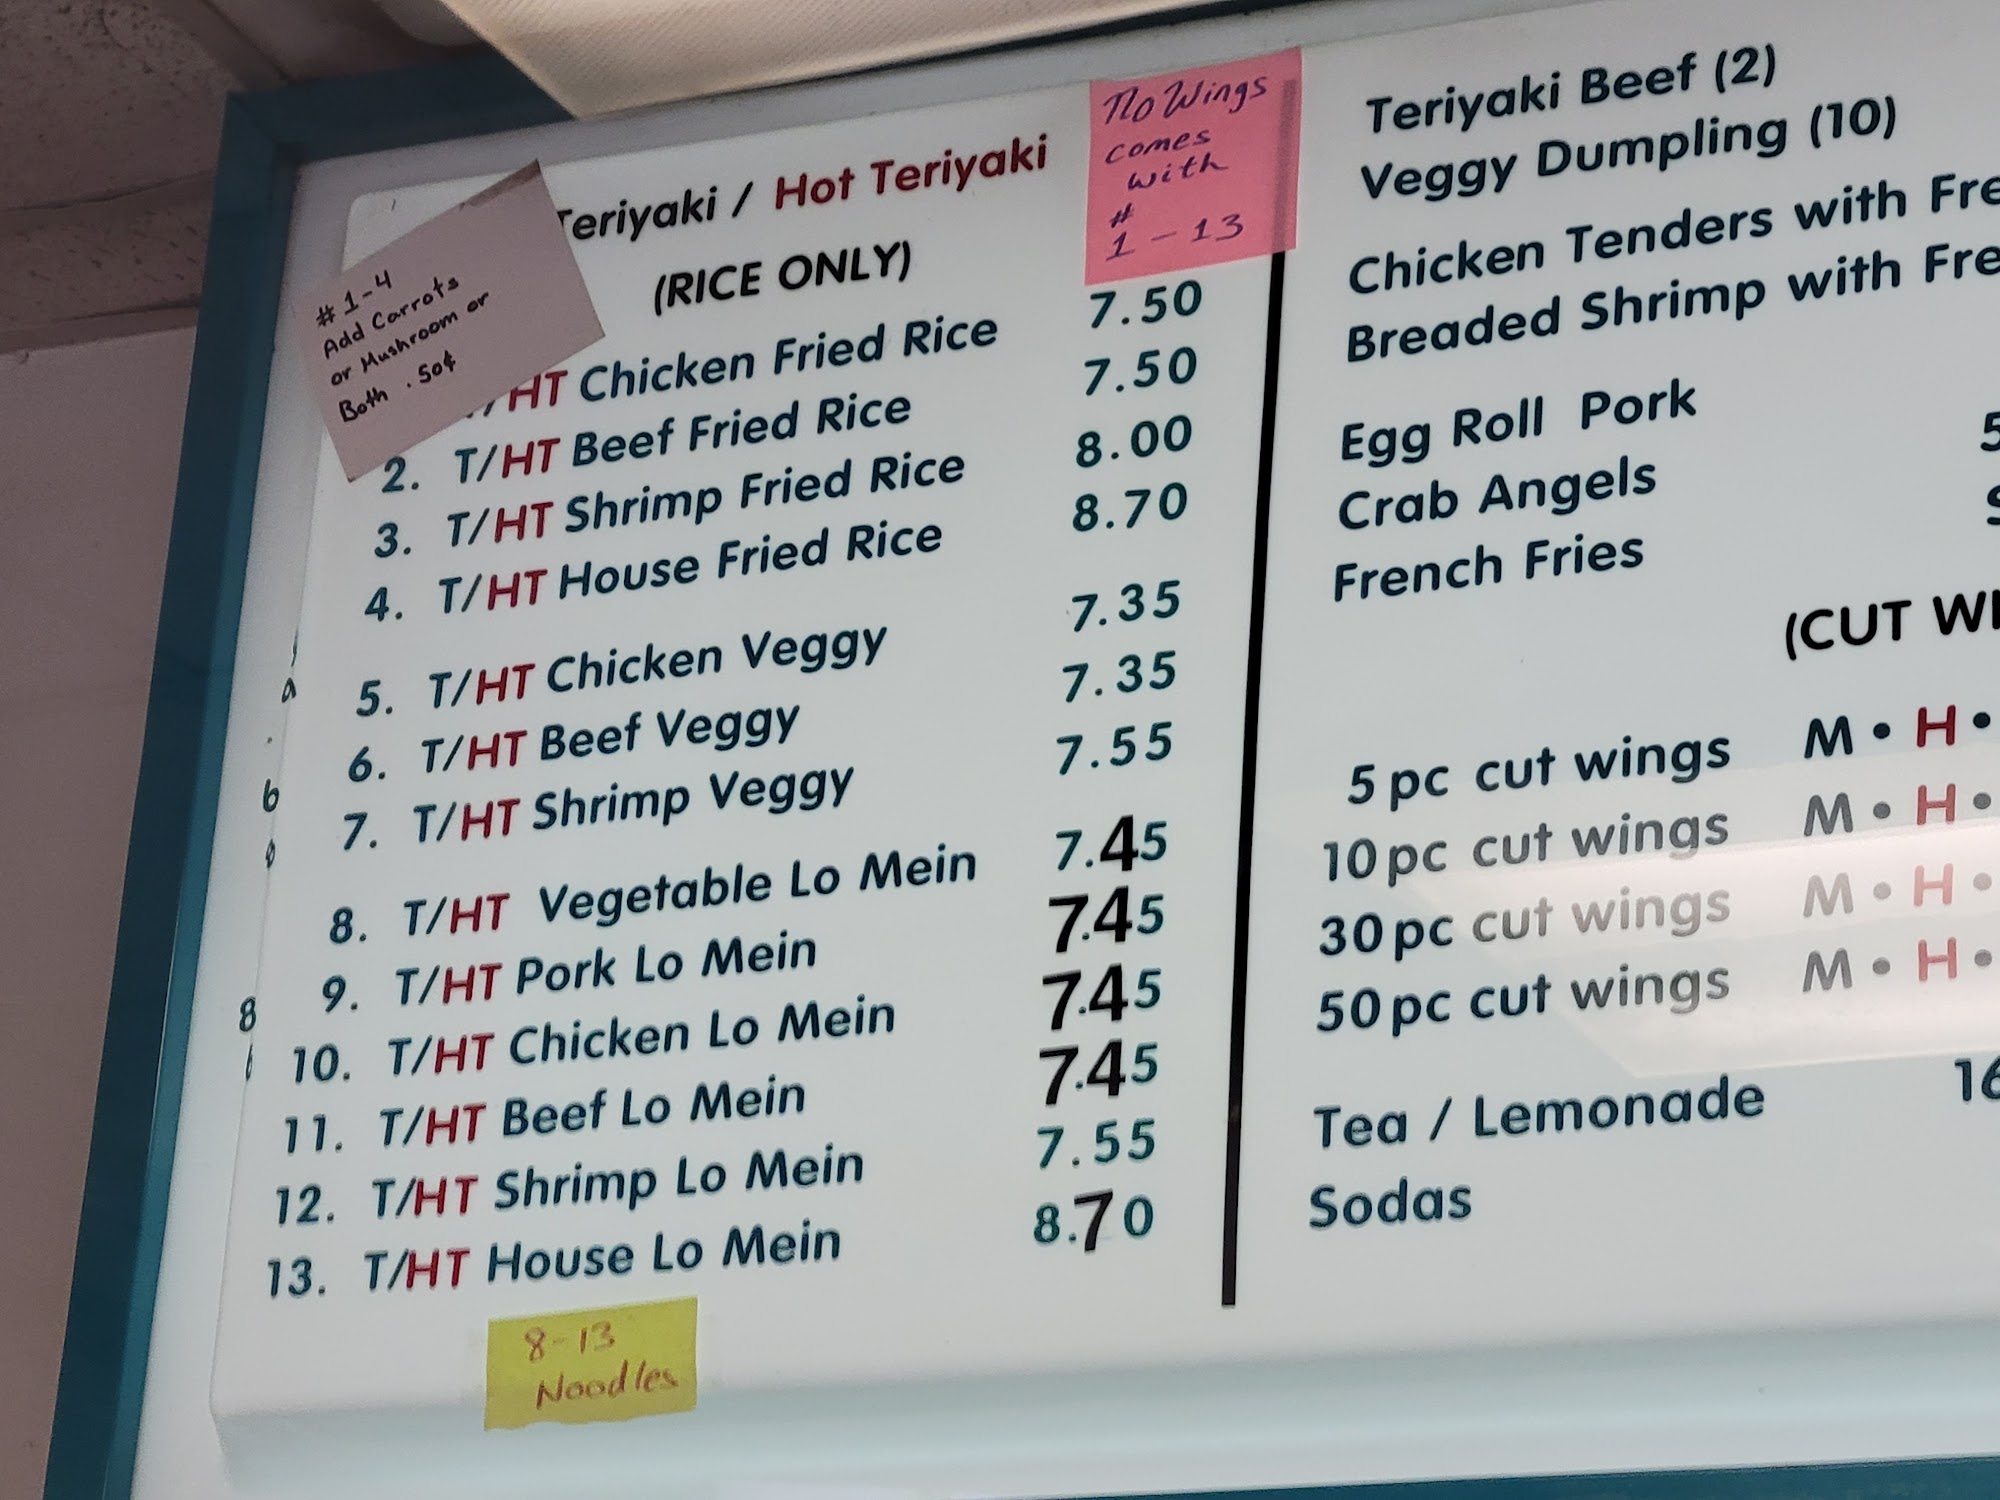 Teriyaki / Hot Teriyaki
(RICE ONLY)
No Wings
comes
with
#
1 - 13
# 1-4
Add Carrots
or Mushroom or
Both .50¢
HT Chicken Fried Rice 7.50
2. T/HT Beef Fried Rice 7.50
3. T/HT Shrimp Fried Rice 8.00
4. T/HT House Fried Rice 8.70
5. T/HT Chicken Veggy 7.35
6. T/HT Beef Veggy 7.35
7. T/HT Shrimp Veggy 7.55
8. T/HT Vegetable Lo Mein 7.45
9. T/HT Pork Lo Mein 7.45
10. T/HT Chicken Lo Mein 7.45
11. T/HT Beef Lo Mein 7.45
12. T/HT Shrimp Lo Mein 7.55
13. T/HT House Lo Mein 8.70
8-13
Noodles
Teriyaki Beef (2)
Veggy Dumpling (10)
Chicken Tenders with Fre
Breaded Shrimp with Fre
Egg Roll Pork
Crab Angels 5
French Fries
(CUT WI
5 pc cut wings M • H •
10 pc cut wings M • H •
30 pc cut wings M • H •
50 pc cut wings M • H •
Tea / Lemonade 16
Sodas